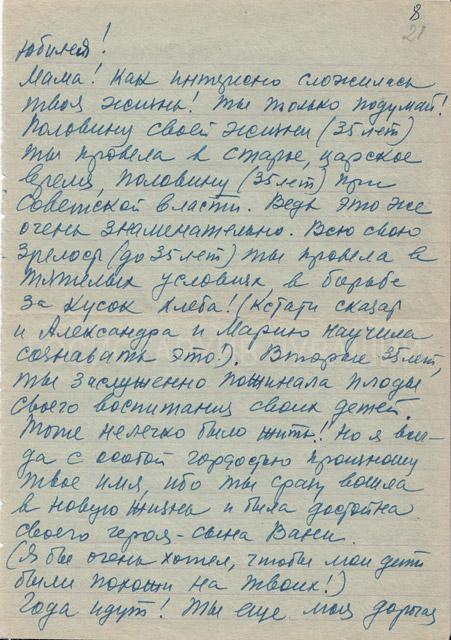 8
21
юбилея!
Мама! Как интересно сложилась
твоя жизнь! Ты только подумай!
Половину своей жизни (35 лет)
ты провела в старое, царское
время, половину (35 лет) при
Советской власти. Ведь это же
очень знаменательно. Всю свою
зрелость (до 35 лет) ты провела в
тяжелых условиях, в борьбе
за кусок хлеба! (Кстати сказать
и Александра и Марию научила
сознавать это!). Вторые 35 лет,
ты заслуженно пожинала плоды
своего воспитания своих детей.
Тоже нелегко было жить! Но я все-
да с особой гордостью произношу
твое имя, ибо ты сразу вошла
в новую жизнь и была достойна
своего героя-сына Вани.
(Я бы очень хотел, чтобы мои дети
были похожи на твоих!)
Года идут! Ты еще моя дорогая